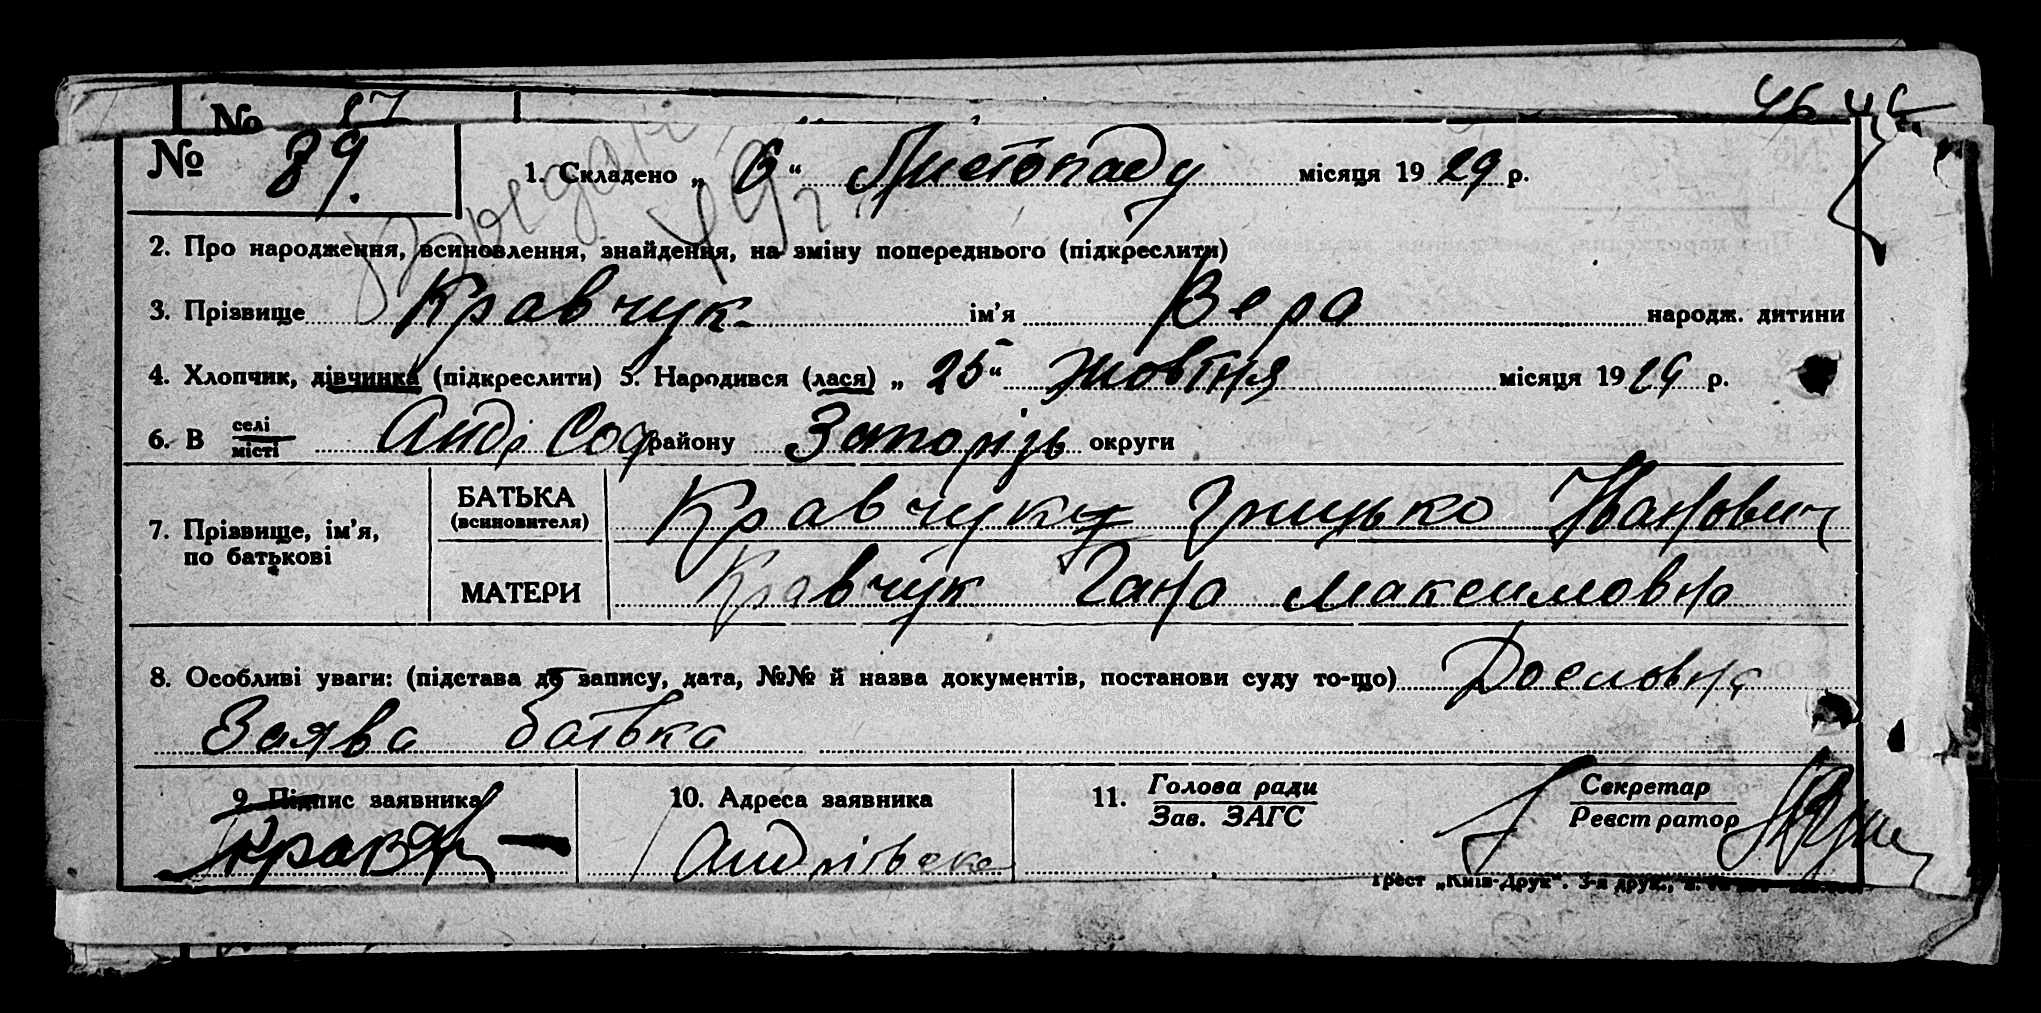 № 87
46 46
№ 89.
1. Складено „ 6 “ Листопаду місяця 19 29 р.
2. Про народження, всиновлення, знайдення, на зміну попереднього (підкреслити)
3. Прізвище Кравчук ім’я Вера народж. дитини
4. Хлопчик, дівчинка (підкреслити) 5. Народився (лася) „ 25 “ жовтня місяця 19 29 р.
6. В селі місті Анд Соф району Запорізь округи
7. Прізвище, ім’я, по батькові
БАТЬКА (всиновителя) Кравчук Грицько Иванович
МАТЕРИ Кравчук Гана максимовна
8. Особливі уваги: (підстава до запису, дата, №№ й назва документів, постанови суду то-що) Дословна
Заява батька
9. Підпис заявника 10. Адреса заявника 11. Голова ради Зав. ЗАГС Секретар Реєстратор
Андрієвка
Трест „Київ-Друк“. 3-я друк.,